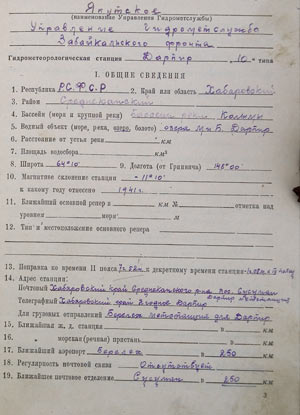 Якутское
(наименование Управления Гидрометслужбы)
Управление Гидрометслужбы
Забайкальского фронта
Гидрометеорологическая станция Дарпир, 10 " типа
I. ОБЩИЕ СВЕДЕНИЯ
1. Республика РСФСР 2. Край или область Хабаровский
3. Район Среднеканский
4. Бассейн (моря и крупной реки) бассейн реки Колыми
5. Водный объект (море, река, озеро, болото) озеро М и Б. Дарпир
6. Расстояние от устья реки км
7. Площадь водосбора км²
8. Широта 64°10' 9. Долгота (от Гринвича) 148°00'
10. Магнитное склонение станции -11°10'
к какому году отнесено 1941 г.
11. Ближайший основной репер в км № отметка над
уровнем моря: м
12. Тип и местоположение основного репера
13. Поправка ко времени II пояса к декретному времени станции
14. Адрес станции:
Почтовый Хабаровский край Среднеканского р-на пос. Сусуман
Телеграфный Хабаровский край Ягодное Дарпир
Для грузовых отправлений Берелех метеостанция для Дарпир
15. Ближайшая ж. д. станция в км
16. " морская (речная) пристань в км
17. Ближайший аэропорт Берелех в 250 км
18. Регулярность почтовой связи Отсутствует
19. Ближайшее почтовое отделение Сусуман в 250 км
3